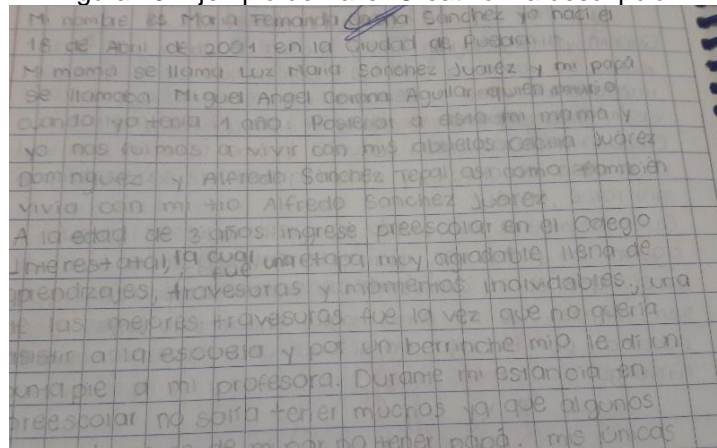 Mi nombre es Maria Fernanda Sánchez yo nací el
18 de Abril de 2001 en la Ciudad de Puebla
Mi mamá se llama Luz María Sánchez Juárez y mi papá
se llamaba Miguel Angel Corona Aguilar quien murio
cuando yo tenia 1 año. Posterior a esto mi mama y
yo nos fuimos a vivir con mis abuelos Juárez
Dominguez y Alfredo Sánchez Tepal asi como también
vivia con mi tio Alfredo Sanchez Juárez.
A la edad de 3 años ingrese preescolar en el Colegio
la cual fue una etapa muy agradable llena de
aprendizajes, travesuras y momentos inolvidables, una
de las mejores travesuras fue la vez que no queria
a la escuela y por un berrinche mio le di un
puntapie a mi profesora. Durante mi estancia en
preescolar no solia tener muchos ya que algunos
no tener papá. mis únicas